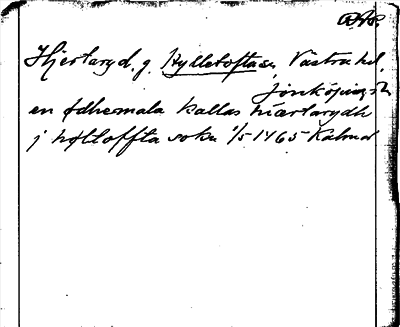 Hjertaryd. g. Hylletofta sn, Västra hd,
Jönköpings l.
en ødhesmala kallas hiærtarydh
j høltoffta sokn 1/5 1465 Kalmar